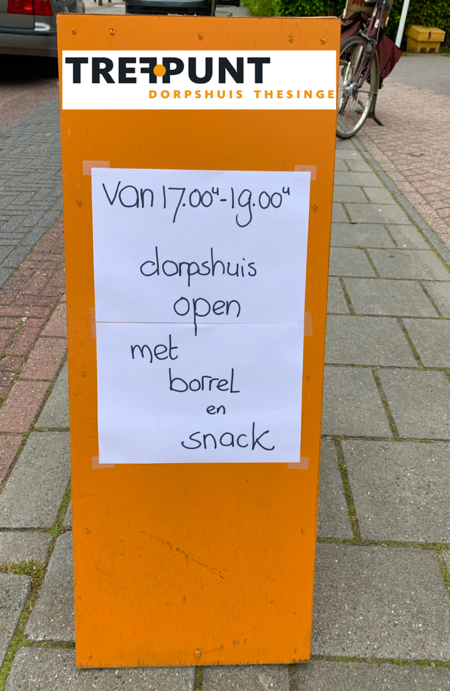 TREFPUNT
DORPSHUIS THESINGE
Van 17.00u-19.00u
dorpshuis
open
met
borrel
en
snack